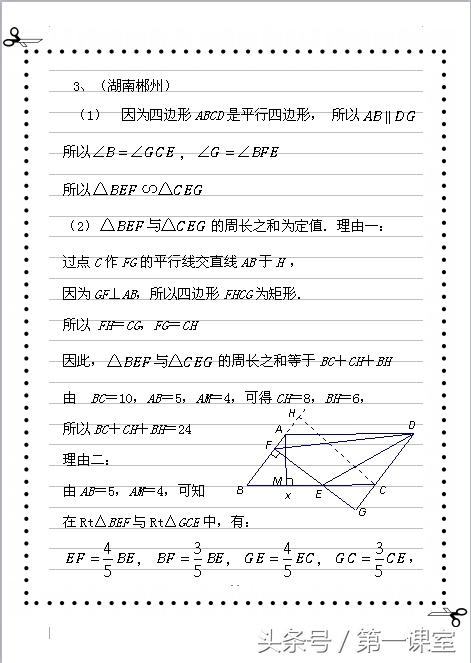 3、（湖南郴州）
（1） 因为四边形ABCD是平行四边形， 所以AB∥DG
所以∠B＝∠GCE，∠G＝∠BFE
所以△BEF∽△CEG
（2）△BEF与△CEG的周长之和为定值．理由一：
过点C作FG的平行线交直线AB于H，
因为GF⊥AB，所以四边形FHCG为矩形．
所以 FH＝CG，FG＝CH
因此，△BEF与△CEG的周长之和等于BC＋CH＋BH
由 BC＝10，AB＝5，AM＝4，可得CH＝8，BH＝6，
所以BC＋CH＋BH＝24
理由二：
由AB＝5，AM＝4，可知
在Rt△BEF与Rt△GCE中，有：
EF＝4/5BE，BF＝3/5BE，GE＝4/5EC，GC＝3/5CE，
H
A
D
F
B
M
x
E
C
G
头条号／第一课室